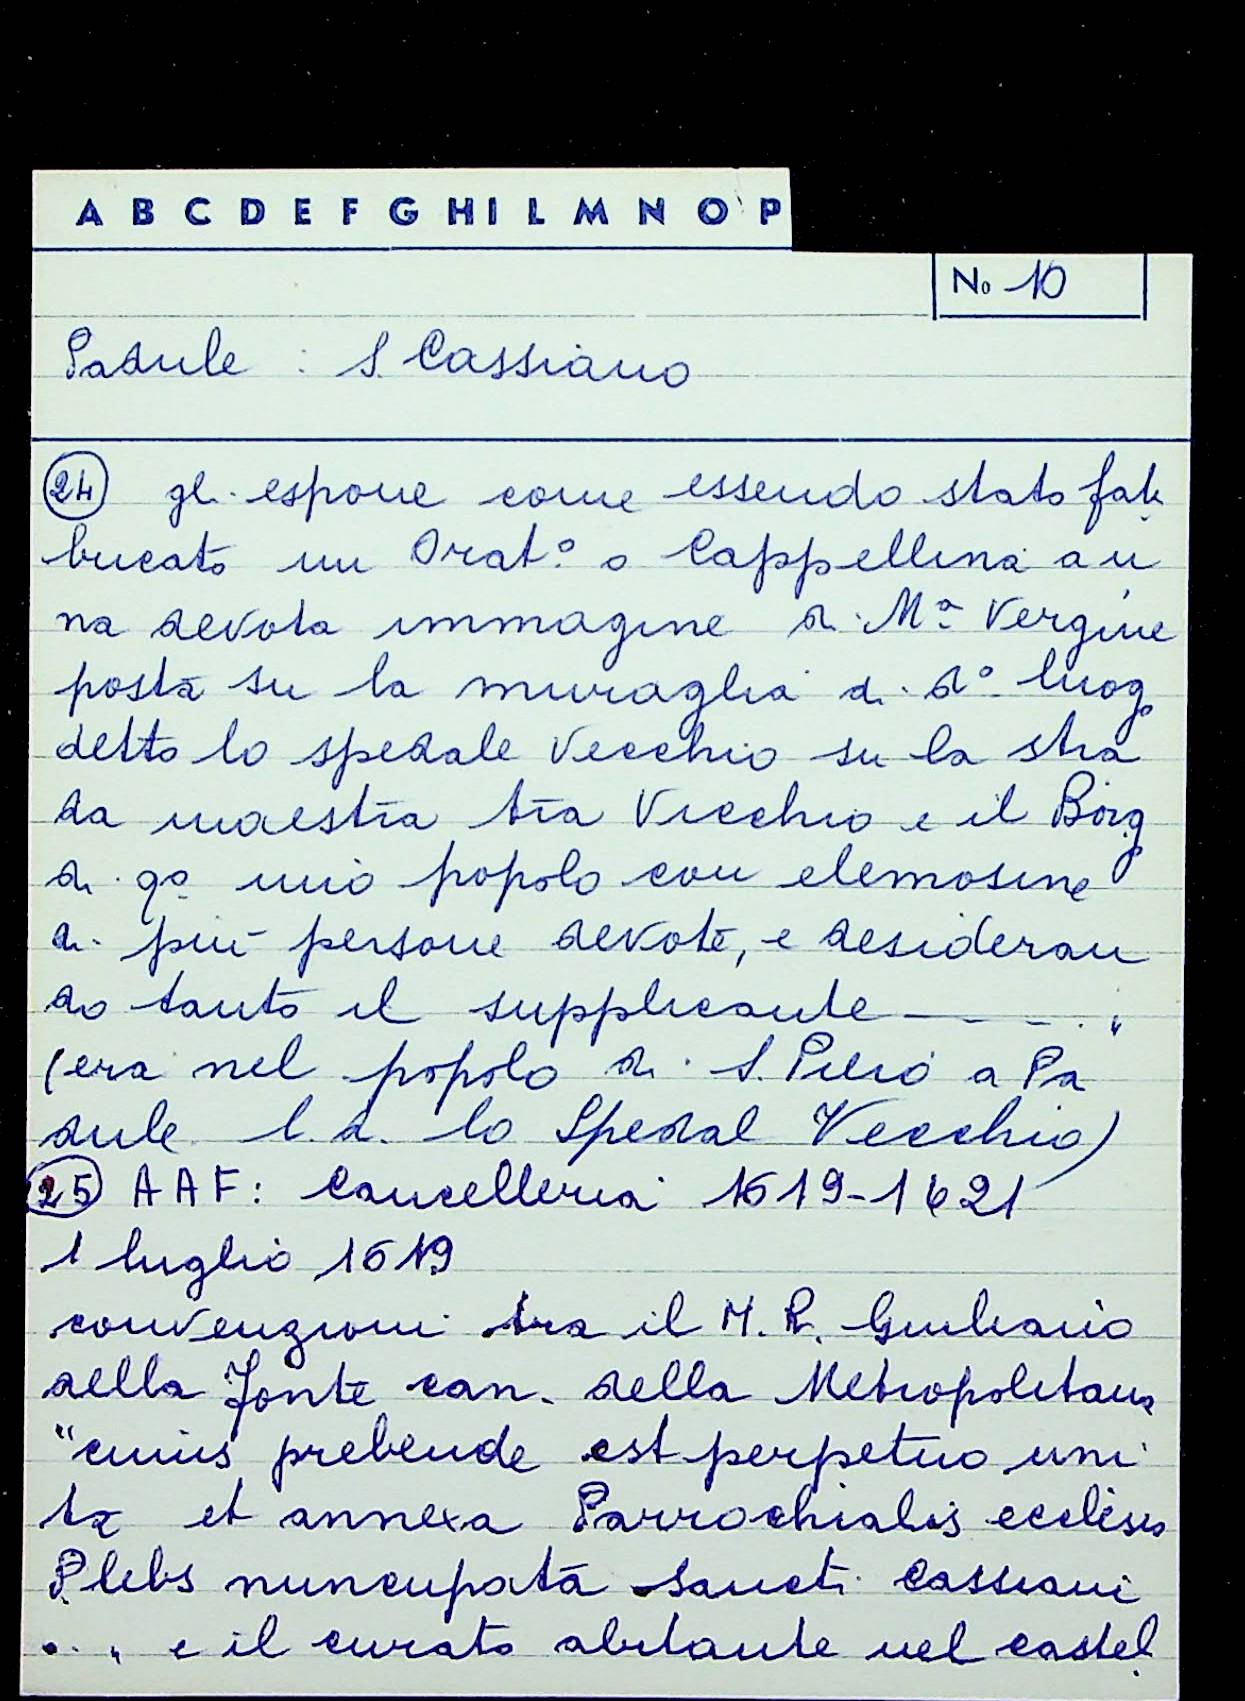 A B C D E F G H I L M N O P
No 10
Padule : S. Cassiano
24 gli espone come essendo stato fab
bricato un Orat.º o Cappellina a u
na devota immagine di Mª Vergine
posta su la muraglia di dº luogo
detto lo spedale Vecchio su la stra
da maestra tra Vicchio e il Borgo
di qº mio popolo con elemosine
di più persone devote, e desideran
do tanto il supplicante - - - . "
(era nel popolo di S. Piero a Pa
dule l.d. lo Spedal Vecchio)
25 AAF: Cancelleria 1619-1621
1 luglio 1619
convenzioni tra il M. R. Giuliano
della Fonte can. della Metropolitana
"cuius prebende est perpetuo uni
ta et annexa Parrochialis ecclesia
Plebs nuncupata Sancti Cassiani
.. " e il curato abitante nel castel